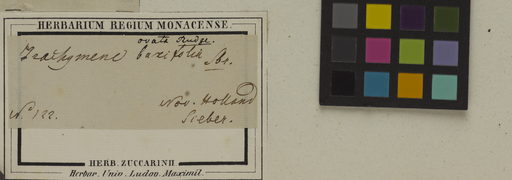 HERBARIUM REGIUM MONACENSE.
ovata Rudge.
Trachymene buxifolia Sbr.
Nov. Holland
N. 122.
Sieber.
HERB. ZUCCARINII
Herbar. Univ. Ludov. Maximil.